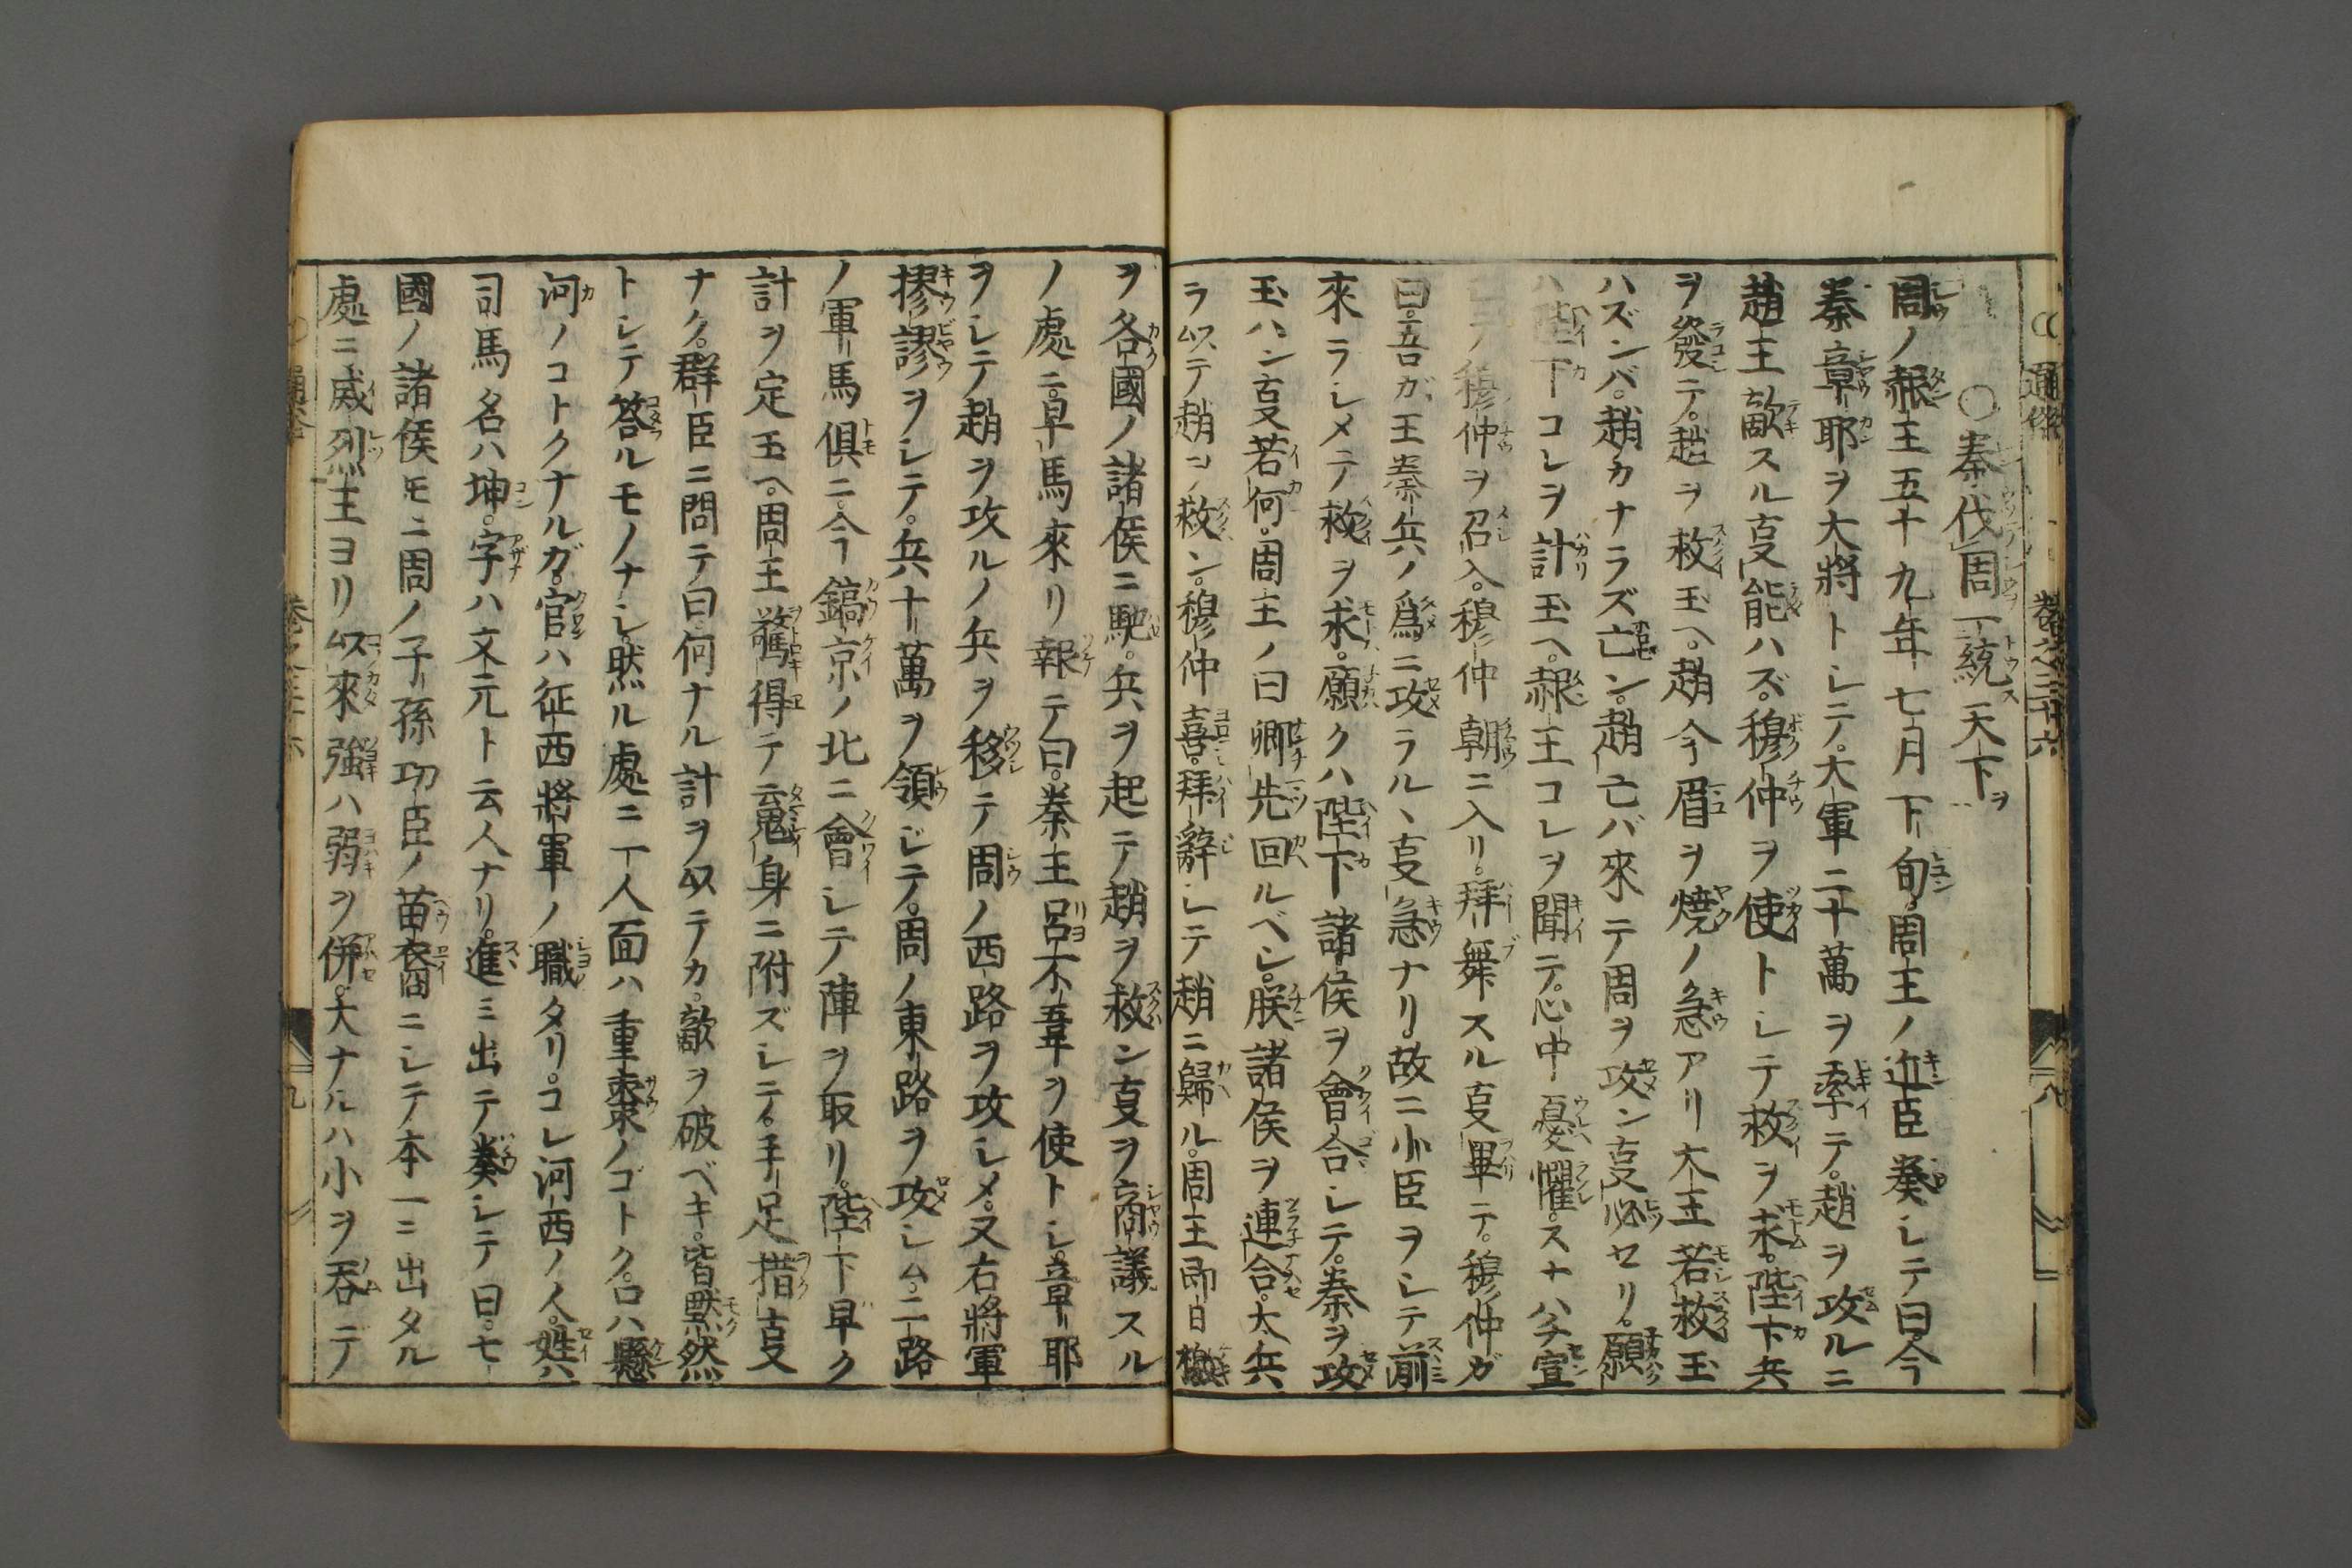 通俗 卷之三十六 八
○秦伐周一統天下ヲ
周ノ赧王五十九年七月下旬。周王ノ近臣奏シテ曰。今
秦章耶ヲ大將トシテ。大軍二十萬ヲ率テ。趙ヲ攻ルニ
趙王敵スル叓能ハズ。穆仲ヲ使トシテ救ヲ求。陛下兵
ヲ發テ。趙ヲ救玉ヘ。趙今眉ヲ燒ノ急アリ大王若救玉
ハズンバ。趙カナラズ亡ン。趙亡バ來テ周ヲ攻ン叓必セリ。願
ハ陛下コレヲ計玉ヘ。赧王コレヲ聞テ。心中憂懼。スナハチ宣
ノ穆仲ヲ召入。穆仲朝ニ入リ。拜舞スル叓畢テ。穆仲ガ
曰。吾ガ王秦兵ノ爲ニ攻ラルヽ叓急ナリ。故ニ小臣ヲシテ前
來ラシメテ救ヲ求。願クハ陛下諸侯ヲ會合シテ。秦ヲ攻
玉ハン叓若何。周王ノ曰卿先回ルベシ。朕諸侯ヲ連合。大兵
ラ以テ趙ヲ救ン。穆仲喜。拜辭シテ趙ニ歸ル。周王即日檄
ヲ各國ノ諸侯ニ馳。兵ヲ起テ趙ヲ救ン叓ヲ商議スル
ノ處ニ。早馬來リ報テ曰。秦王呂不韋ヲ使トシ。章耶
ヲシテ趙ヲ攻ルノ兵ヲ移テ周ノ西路ヲ攻シメ。又右將軍
摎謬ヲシテ。兵十萬ヲ領ジテ。周ノ東路ヲ攻シム。二路
ノ軍馬俱ニ。今鎬京ノ北ニ會シテ陣ヲ取リ。陛下早ク
計ヲ定玉ヘ。周王驚得テ䰟身ニ附ズシテ。手足措叓
ナク。群臣ニ問テ曰。何ナル計ヲ以テカ。敵ヲ破ベキ。皆默然
トシテ答ルモノナシ。然ル處ニ一人面ハ重棗ノゴトク。口ハ懸
河ノコトクナルガ。官ハ征西將軍ノ職タリ。コレ河西ノ人。姓ハ
司馬名ハ坤。字ハ文元ト云人ナリ。進ミ出テ奏シテ曰。七
國ノ諸侯モニ周ノ子孫功臣ノ苗裔ニシテ本一ニ出タル
處ニ威烈王ヨリ以來強ハ弱ヲ併。大ナルハ小ヲ吞デ
九